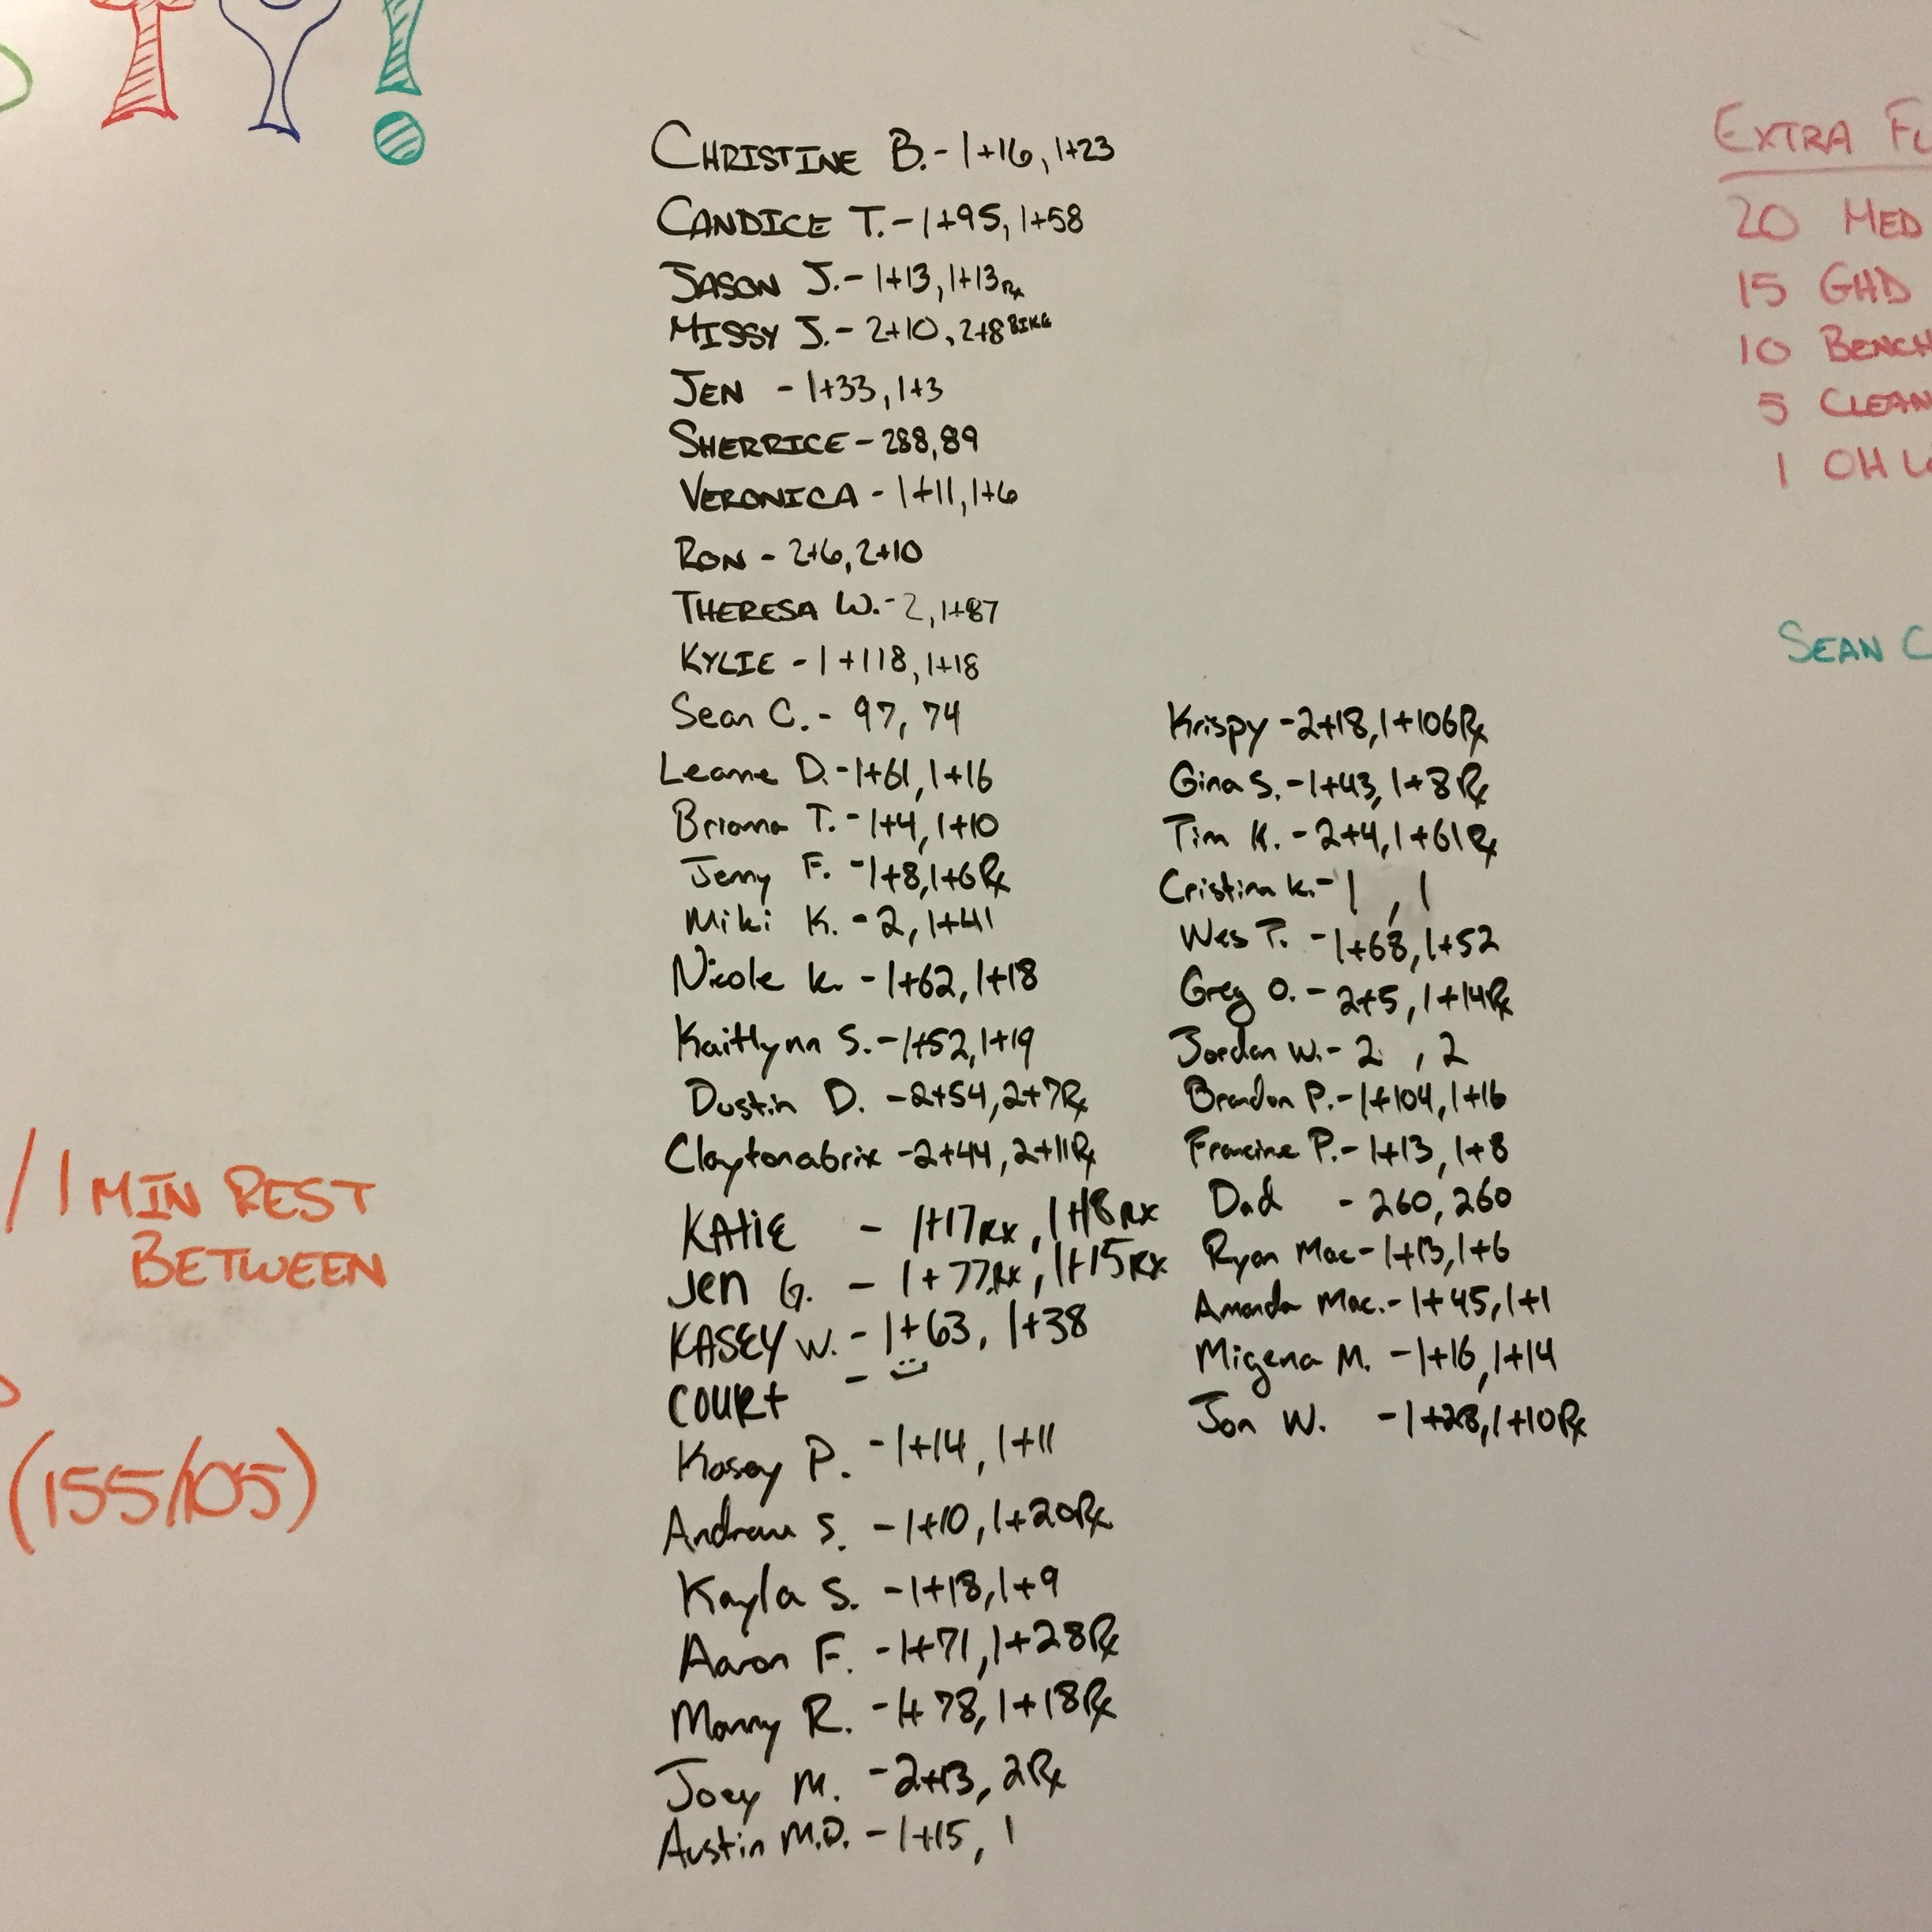 TY!
CHRISTINE B. - 1+16, 1+23
CANDICE T. - 1+95, 1+58
JASON J. - 1+13, 1+13 Rx
MISSY J. - 2+10, 2+8 BIKE
JEN - 1+33, 1+3
SHERRICE - 288, 89
VERONICA - 1+11, 1+6
RON - 2+6, 2+10
THERESA W. - 2, 1+87
KYLIE - 1+118, 1+18
Sean C. - 97, 74
Leanne D. - 1+61, 1+16
Briana T. - 1+4, 1+10
Jenny F. - 1+8, 1+6 Rx
Miki K. - 2, 1+41
Nicole K. - 1+62, 1+18
Kaitlynn S. - 1+52, 1+19
Dustin D. - 2+54, 2+7 Rx
Claytonabrix - 2+44, 2+11 Rx
KAtiE - 1+17 RX, 1+18 RX
Jen G. - 1+77 RX, 1+15 RX
KASEY W. - 1+63, 1+38
COURt -
Kasey P. - 1+14, 1+11
Andrew S. - 1+10, 1+20 Rx
Kayla S. - 1+18, 1+9
Aaron F. - 1+71, 1+28 Rx
Manny R. - 1+78, 1+18 Rx
Joey M. - 2+13, 2 Rx
Austin M.D. - 1+15, 1
Krispy - 2+18, 1+106 Rx
Gina S. - 1+43, 1+8 Rx
Tim K. - 2+4, 1+61 Rx
Cristina K. - 1, 1
Wes T. - 1+68, 1+52
Greg O. - 2+5, 1+14 Rx
Jordan W. - 2, 2
Brandon P. - 1+104, 1+16
Francine P. - 1+13, 1+8
Dad - 260, 260
Ryan Mac - 1+13, 1+6
Amanda Mac. - 1+45, 1+1
Migena M. - 1+16, 1+14
Jon W. - 1+28, 1+10 Rx
/ 1 MIN REST
BETWEEN
(155/105)
EXTRA
20 MED
15 GHD
10 BENCH
5 CLEAN
1 OH
SEAN C